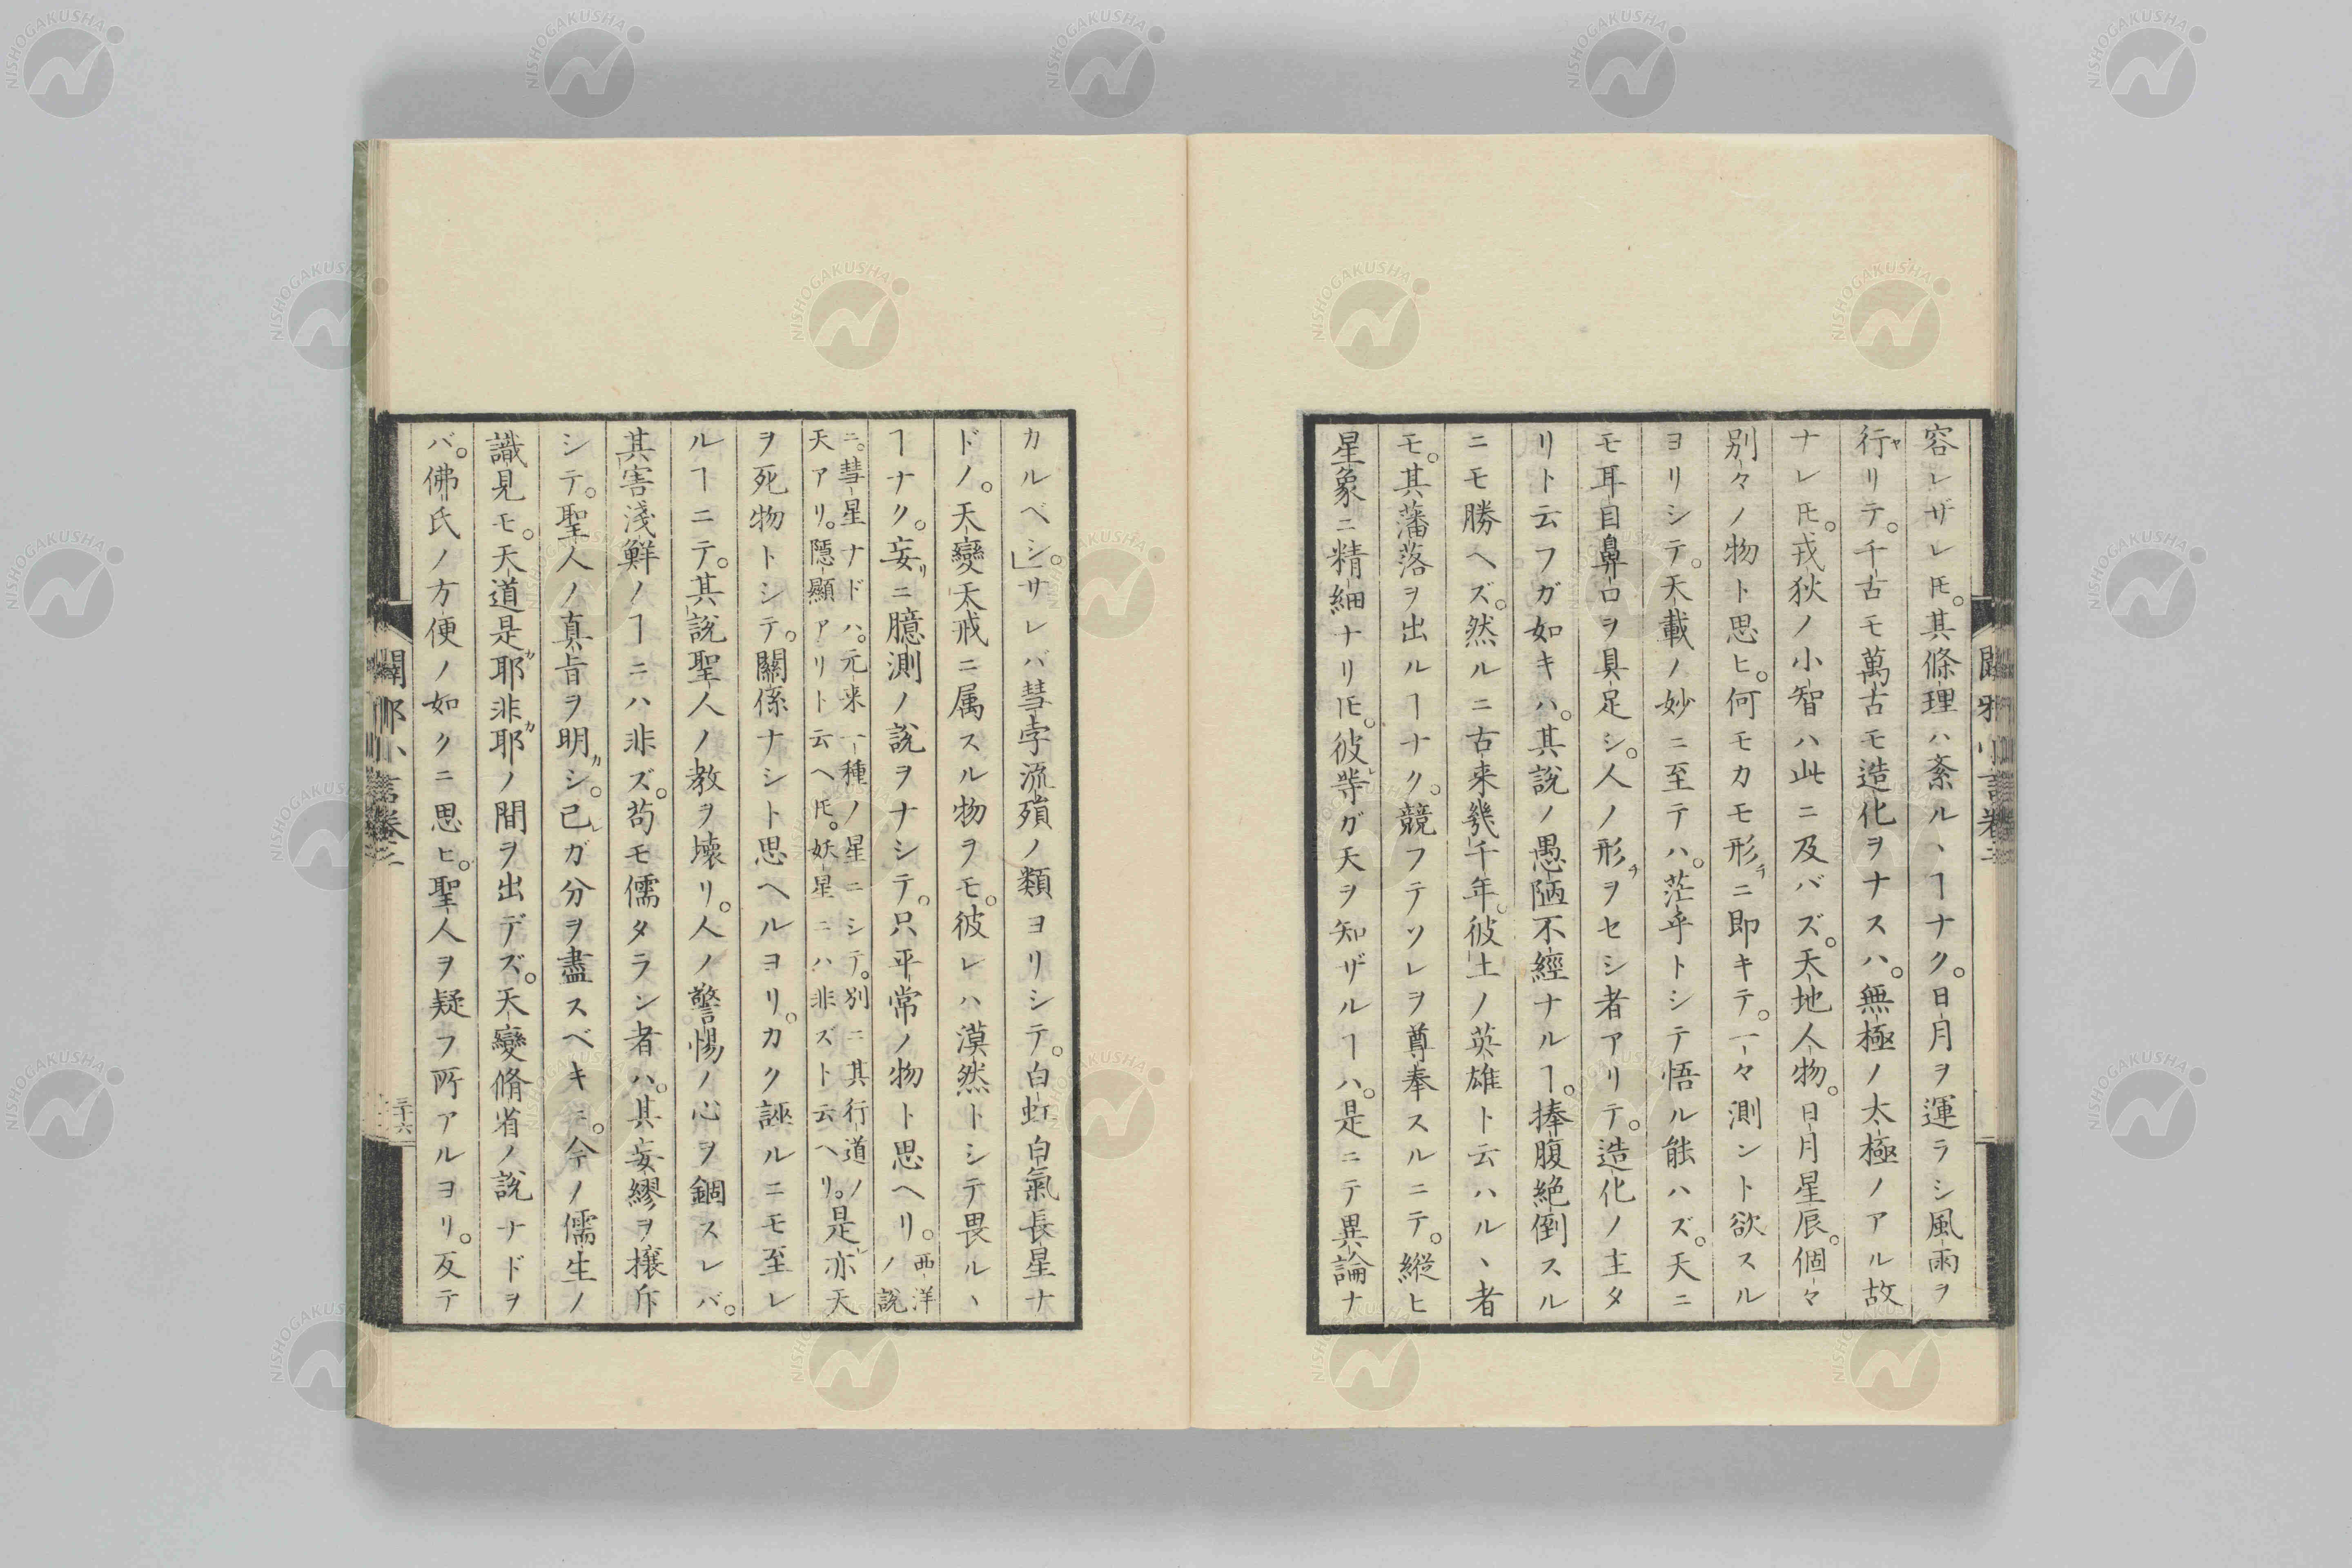 容レザレ𪜈。其條理ハ紊ル丶ヿナク。日月ヲ運ラシ風雨ヲ
行リテ。千古モ萬古モ造化ヲナスハ。無極ノ太極ノアル故
ナレ𪜈。戎狄ノ小智ハ此ニ及バズ。天地人物。日月星辰。個々
別々ノ物ト思ヒ。何モカモ形ニ即キテ。一々測ント欲スル
ヨリシテ。天載ノ妙ニ至テハ。茫乎トシテ悟ル能ハズ。天ニ
モ耳目鼻口ヲ具足シ。人ノ形ヲセシ者アリテ。造化ノ主タ
リト云フガ如キハ。其說ノ愚陋不經ナルヿ。捧腹絶倒スル
ニモ勝ヘズ。然ルニ古来幾千年。彼土ノ英雄ト云ハル丶者
モ。其藩落ヲ出ルヿナク。競フテソレヲ尊奉スルニテ。縦ヒ
星象ニ精細ナリ𪜈。彼等ガ天ヲ知ザルヿハ。是ニテ異論ナ
カルベシ。」サレバ彗孛流殞ノ類ヨリシテ。白虹白氣長星ナ
ドノ。天變天戒ニ属スル物ヲモ。彼レハ漠然トシテ畏ル丶
ヿナク。妄リニ臆測ノ說ヲナシテ。只平常ノ物ト思ヘリ。西洋ノ說
ニ。彗星ナドハ。元来一種ノ星ニシテ。別ニ其行道ノ
天アリ。隱顯アリト云ヘ𪜈。妖星ニハ非ズト云ヘリ。是亦天
ヲ死物トシテ。關係ナシト思ヘルヨリ。カク誣ルニモ至レ
ルヿニテ。其說聖人ノ教ヲ壊リ。人ノ警惕ノ心ヲ錮スレバ。
其害淺鮮ノヿニハ非ズ。苟モ儒タラン者ハ。其妄繆ヲ攘斥
シテ。聖人ノ真旨ヲ明シ。己ガ分ヲ盡スベキニ。今ノ儒生ノ
識見モ。天道是耶非耶ノ間ヲ出デズ。天變脩省ノ說ナドヲ
バ。佛氏ノ方便ノ如クニ思ヒ。聖人ヲ疑フ所アルヨリ。反テ
三十六